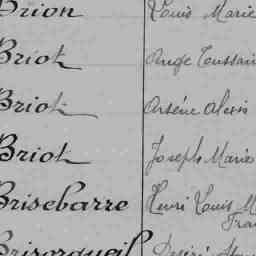 Brion Louis Marie
Briot Ange Toussain
Briot Arsène Alexis
Briot Joseph Marie
Brisebarre Henri Louis M
Fran
Brisorgueil Désiré